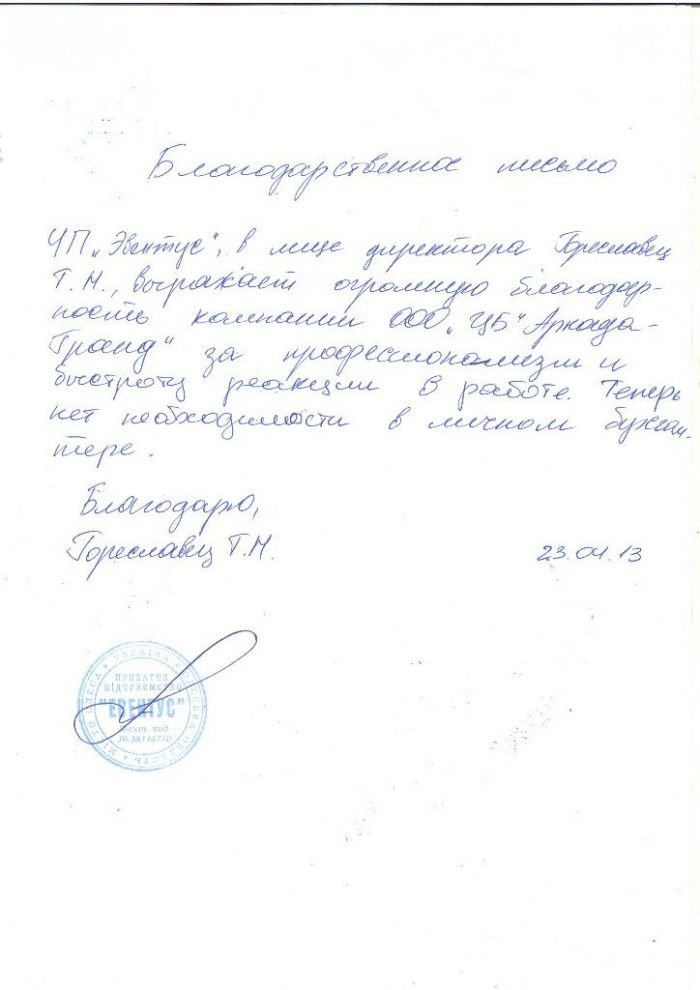 Благодарственное письмо
ЧП „Эвентус", в лице директора Гореславец
Т.М., выражает огромную благодар-
ность компании ООО „ЦБ" Аркада-
Гранд" за профессионализм и
быстроту реакции в работе. Теперь
нет необходимости в личном бухгал-
тере.
Благодарю,
Гореславец Т.М.
23.04.13
УКРАЇНА * ОДЕСЬКА ОБЛАСТЬ * МІСТО ОДЕСА *
ПРИВАТНЕ
ПІДПРИЄМСТВО
"ЕВЕНТУС"
Ідент. код